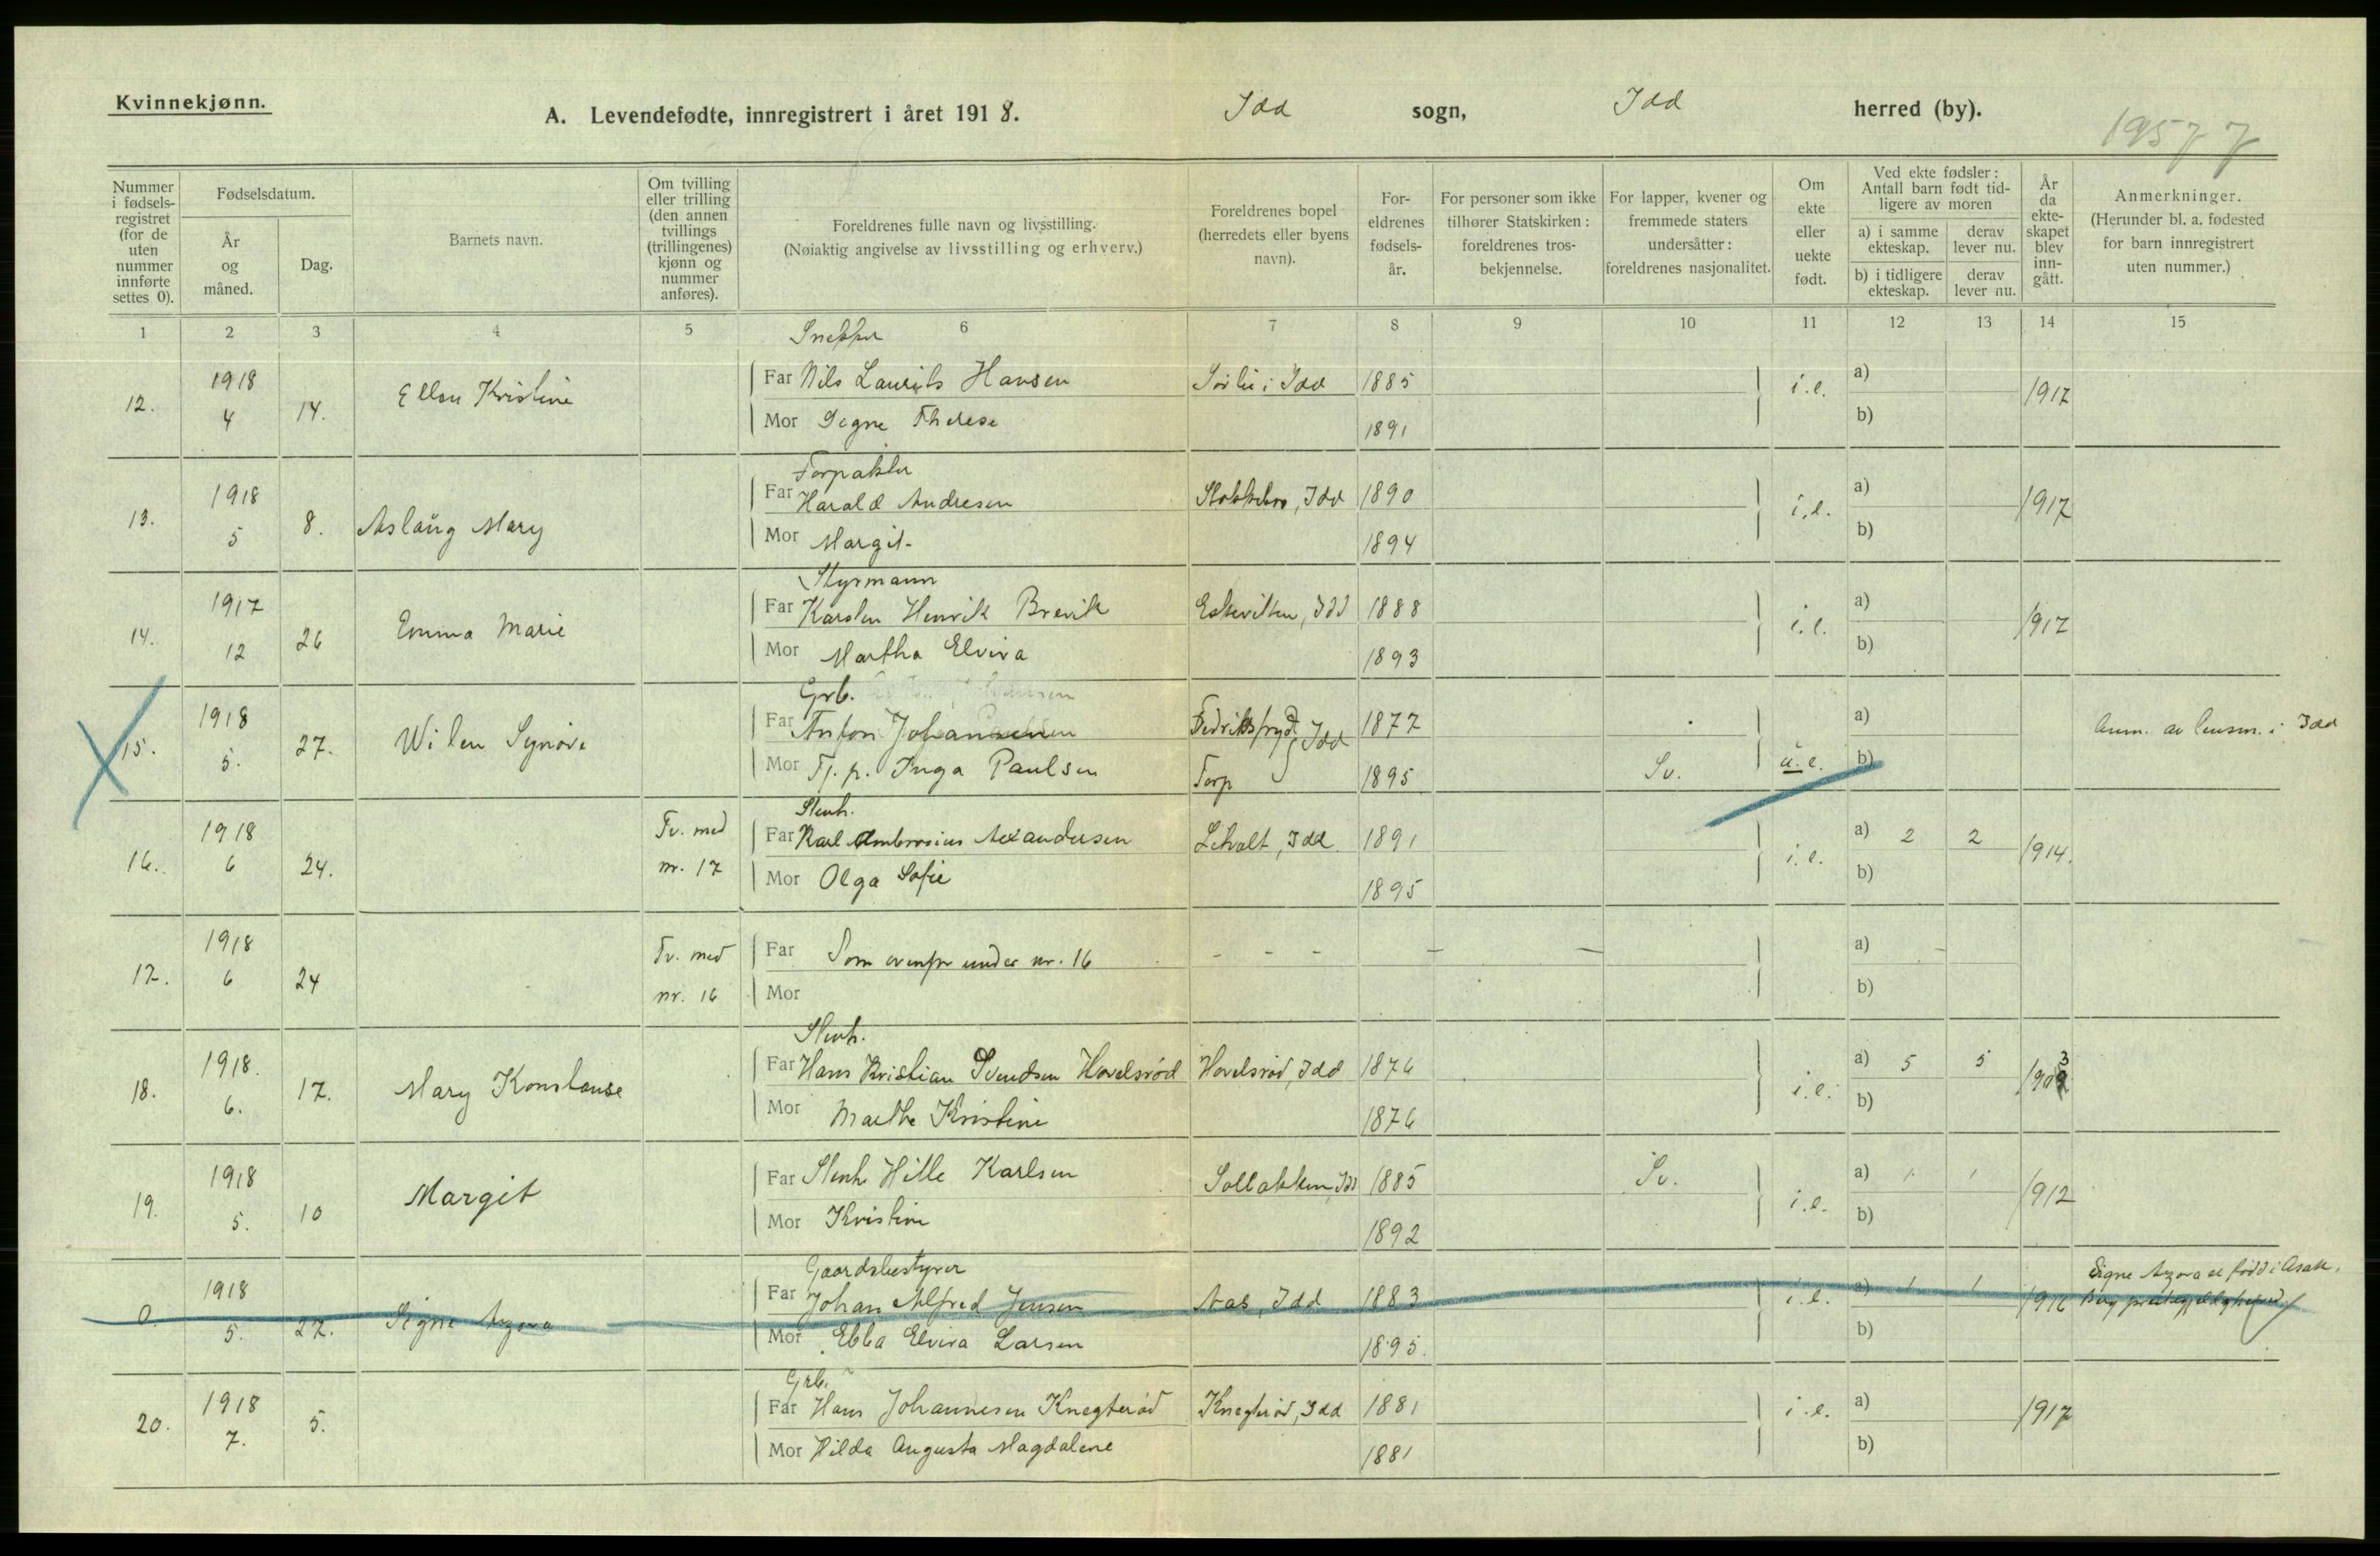 Kvinnekjønn.
A. Levendefødte, innregistrert i året 1918. Idd sogn, Idd herred (by).
19577
Nummer i fødselsregistret (for de uten nummer innførte settes 0).
Fødselsdatum.
År og måned.
Dag.
Barnets navn.
Om tvilling eller trilling (den annen tvillings (trillingenes) kjønn og nummer anføres).
Foreldrenes fulle navn og livsstilling.
(Nøiaktig angivelse av livsstilling og erhverv.)
Foreldrenes bopel (herredets eller byens navn).
Foreldrenes fødselsår.
For personer som ikke tilhører Statskirken: foreldrenes trosbekjennelse.
For lapper, kvener og fremmede staters undersåtter: foreldrenes nasjonalitet.
Om ekte eller uekte født.
Ved ekte fødsler: Antall barn født tidligere av moren
a) i samme ekteskap.
derav lever nu.
b) i tidligere ekteskap.
derav lever nu.
År da ekteskapet blev inngått.
Anmerkninger.
(Herunder bl. a. fødested for barn innregistrert uten nummer.)
1 2 3 4 5 6 7 8 9 10 11 12 13 14 15
Snekker
12. 1918 4 14. Ellen Kristine Far Nils Laurits Hansen Sørli i Idd 1885 i.e. a) 1917
Mor Signe Therese 1891 b)
Forpakter
13. 1918 5 8. Aslaug Mary Far Harald Andresen Stokkebro, Idd 1890 i.e. a) 1917
Mor Margit 1894 b)
Styrmann
14. 1917 12 26 Emma Marie Far Karsten Henrik Brevik Eskeviken, Idd 1888 i.e. a) 1917
Mor Martha Elvira 1893 b)
Grb.
15. 1918 5. 27. Far Anton Johansen Idd 1877 u.e. a) Anm. av lensm. i Idd
Mor Tj. p. Inga Paulsen Torp 1895 Sv. b)
Stenh.
16. 1918 6 24. Tv. med nr. 17 Far Karl Ambrosius Alexandersen Liholt, Idd 1891 i.e. a) 2 2 1914.
Mor Olga Sofie 1895 b)
17. 1918 6 24 Tv. med nr. 16 Far Som ovenfor under nr. 16 - - - a)
Mor b)
Stenh.
18. 1918. 6. 17. Mary Konstanse Far Hans Kristian Svendsen Hovelsrød Hovelsrød, Idd 1876 i.e. a) 5 5 1903
Mor Marthe Kristine 1876 b)
19. 1918 5. 10 Margit Far Stenh. Hille Karlsen Sollakken, Idd 1885 Sv. i.e. a) 1 1 1912
Mor Kristine 1892 b)
Gaardsbestyrer
0. 1918 5. 27. Signe Far Johan Alfred Jensen Aas, Idd 1883 i.e. a) 1 1 1916 Signe er født i Asak,
Mor Ebba Elvira Larsen 1895. b)
Grb.
20. 1918 7. 5. Far Hans Johannesen Knegterød Knegterød, Idd 1881 i.e. a) 1917
Mor Hilda Augusta Magdalene 1881 b)